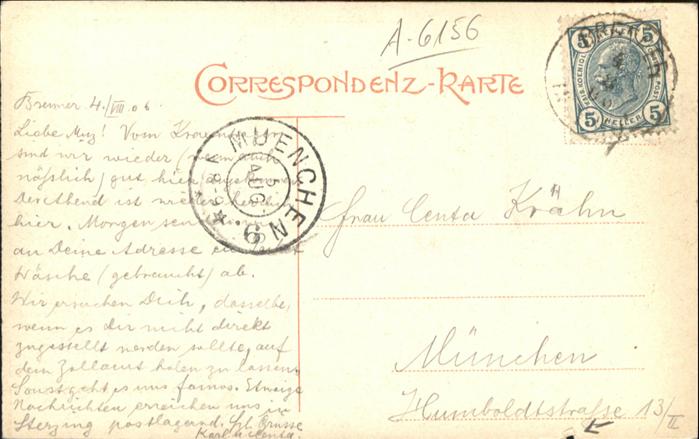 A-6156
CORRESPONDENZ-KARTE
BRENNER
4
5 5
KAIS. KOENIGL.
HELLER
5 5
MUENCHEN
5
AUG
V.8-9
9.
Brenner 4./VIII.06.
Liebe Muz! Vom
sind wir wieder
gut hier
ist wieder
hier. Morgen
an Deine Adresse
Wäsche (gebraucht) ab.
Wir ersuchen Dich, dasselbe,
wenn es dir nicht direkt
zugestellt werden sollte, auf
dem Zollamt holen zu lassen.
Sonst geht es uns famos. Etwaige
Nachrichten erreichen uns in
Sterzing postlagernd. Hzl. Grüsse
Karl u. Centa.
Frau Centa Krähn
München
Humboldtstraße 13/II